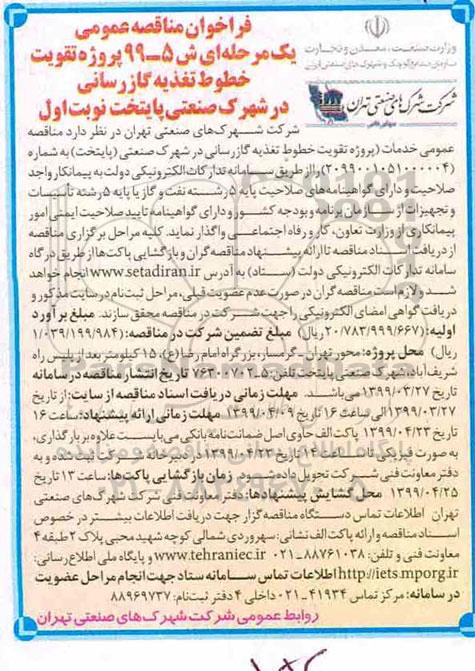 فراخوان مناقصه عمومی
یک مرحله‌ای ش ۵-۹۹ پروژه تقویت
خطوط تغذیه گازرسانی
در شهرک صنعتی پایتخت نوبت اول
وزارت صنعت، معدن و تجارت
سازمان صنایع کوچک و شهرک‌های صنعتی ایران
شرکت شهرک‌های صنعتی تهران
شرکت شهرک‌های صنعتی تهران در نظر دارد مناقصه
عمومی خدمات (پروژه تقویت خطوط تغذیه گازرسانی در شهرک صنعتی (پایتخت) به شماره
(۲۰۹۹۰۰۱۰۵۱۰۰۰۰۰۴) را از طریق سامانه تدارکات الکترونیکی دولت به پیمانکار واجد
صلاحیت و دارای گواهینامه‌های صلاحیت پایه ۵ رشته نفت و گاز یا پایه ۵ رشته تأسیسات
و تجهیزات از سازمان برنامه و بودجه کشور و دارای گواهینامه تایید صلاحیت ایمنی امور
پیمانکاری از وزارت تعاون، کار و رفاه اجتماعی واگذار نماید. کلیه مراحل برگزاری مناقصه
از دریافت اسناد مناقصه تا ارائه پیشنهاد مناقصه گران و بازگشایی پاکت‌ها از طریق درگاه
سامانه تدارکات الکترونیکی دولت (ستاد) به آدرس www.setadiran.ir انجام خواهد
شد و لازم است مناقصه گران در صورت عدم عضویت قبلی، مراحل ثبت‌نام در سایت مذکور و
دریافت گواهی امضای الکترونیکی را جهت شرکت در مناقصه محقق سازند. مبلغ برآورد
اولیه: (۲۰/۷۸۳/۹۹۹/۶۶۷ ریال) مبلغ تضمین شرکت در مناقصه: (۱/۰۳۹/۱۹۹/۹۸۴
ریال) محل پروژه: محور تهران - گرمسار، بزرگراه امام رضا (ع)، ۱۵ کیلومتر بعد از پلیس راه
شریف‌آباد، شهرک صنعتی پایتخت تلفن: ۰۲-۷۶۳۰۰۷ تاریخ انتشار مناقصه در سامانه
تاریخ ۱۳۹۹/۰۳/۲۷ می‌باشد. مهلت زمانی دریافت اسناد مناقصه از سایت: از تاریخ
۱۳۹۹/۰۳/۲۷ الی ساعت ۱۶ تاریخ ۱۳۹۹/۰۴/۰۹ مهلت زمانی ارائه پیشنهاد: ساعت ۱۶
تاریخ ۱۳۹۹/۰۴/۲۳ پاکت الف حاوی اصل ضمانت‌نامه بانکی می‌بایست علاوه بر بارگذاری،
به صورت فیزیکی تا ساعت ۱۴ تاریخ ۱۳۹۹/۰۴/۲۳ و به
دفتر معاونت فنی شرکت تحویل داده شود. زمان بازگشایی پاکت‌ها: ساعت ۱۳ تاریخ
۱۳۹۹/۰۴/۲۵ محل گشایش پیشنهادها: دفتر معاونت فنی شرکت شهرک‌های صنعتی
تهران اطلاعات تماس دستگاه مناقصه گزار جهت دریافت اطلاعات بیشتر در خصوص
اسناد مناقصه و ارائه پاکت الف نشانی: سهروردی شمالی کوچه شهید محبی پلاک ۲ طبقه ۴
معاونت فنی و تلفن: ۸۸۷۶۱۰۳۸-۰۲۱ www.tehraniec.ir و پایگاه ملی اطلاع‌رسانی:
http://iets.mporg.ir اطلاعات تماس سامانه ستاد جهت انجام مراحل عضویت
در سامانه: مرکز تماس ۴۱۹۳۴-۰۲۱ داخلی ۴ دفتر ثبت‌نام: ۸۸۹۶۹۷۳۷
روابط عمومی شرکت شهرک‌های صنعتی تهران